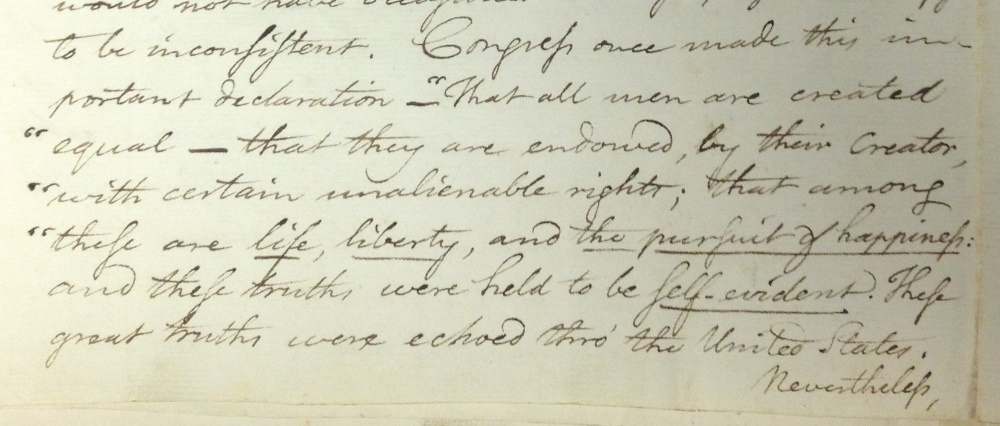 would not have
to be inconsiſtent. Congreſs once made this im-
portant declaration — "That all men are created
"equal — that they are endowed, by their Creator,
"with certain unalienable rights; that among
"theſe are life, liberty, and the purſuit of happineſs:
and theſe truths were held to be ſelf-evident. Theſe
great truths were echoed thro' the United States.
Nevertheleſs,